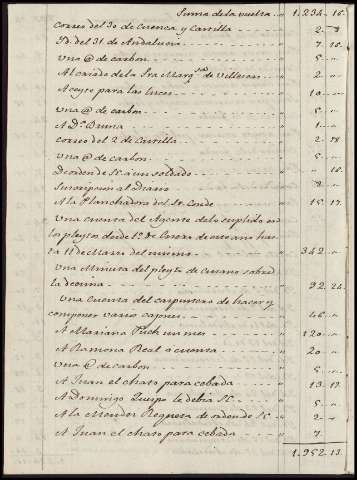 Suma de la vuelta 1.234.. 18.
Correo del 30 de Cuenca y Castilla 2..
Id. del 31 de Andalucia 7.. 18.
Una @ de carbon 5..
Al criado de la Sra Marqsa de Villeros 2..
Aceyte para las luces 10..
Una @ de carbon 5..
A Dn. Bruna 1..
Correo del 2 de Castilla 2..
Una @ de carbon 5..
De orden de S.E. a un soldado 18.
Suscripcion al Diario 8..
A la Planchadora del Sr. Conde 15.. 17.
Una cuenta del Agente de lo suplido en
los pleytos desde 1o. de Enero de este año has
ta 11 de Marzo del mismo 342..
Una Minuta del pleyto de sobre
la decima 32.. 24.
Una Cuenta del carpintero de hacer y
componer varios cajones 46..
A Mariana Puch un mes 120..
A Ramona Real a cuenta 20..
Una @ de carbon 5..
A Juan el chato para cebada 13.. 13.
A Domingo Quispo le debia S.E. 5..
A la Mendez Requesa de orden de S.E. 2..
A Juan el chato para cebada 7..
1.952.. 13.